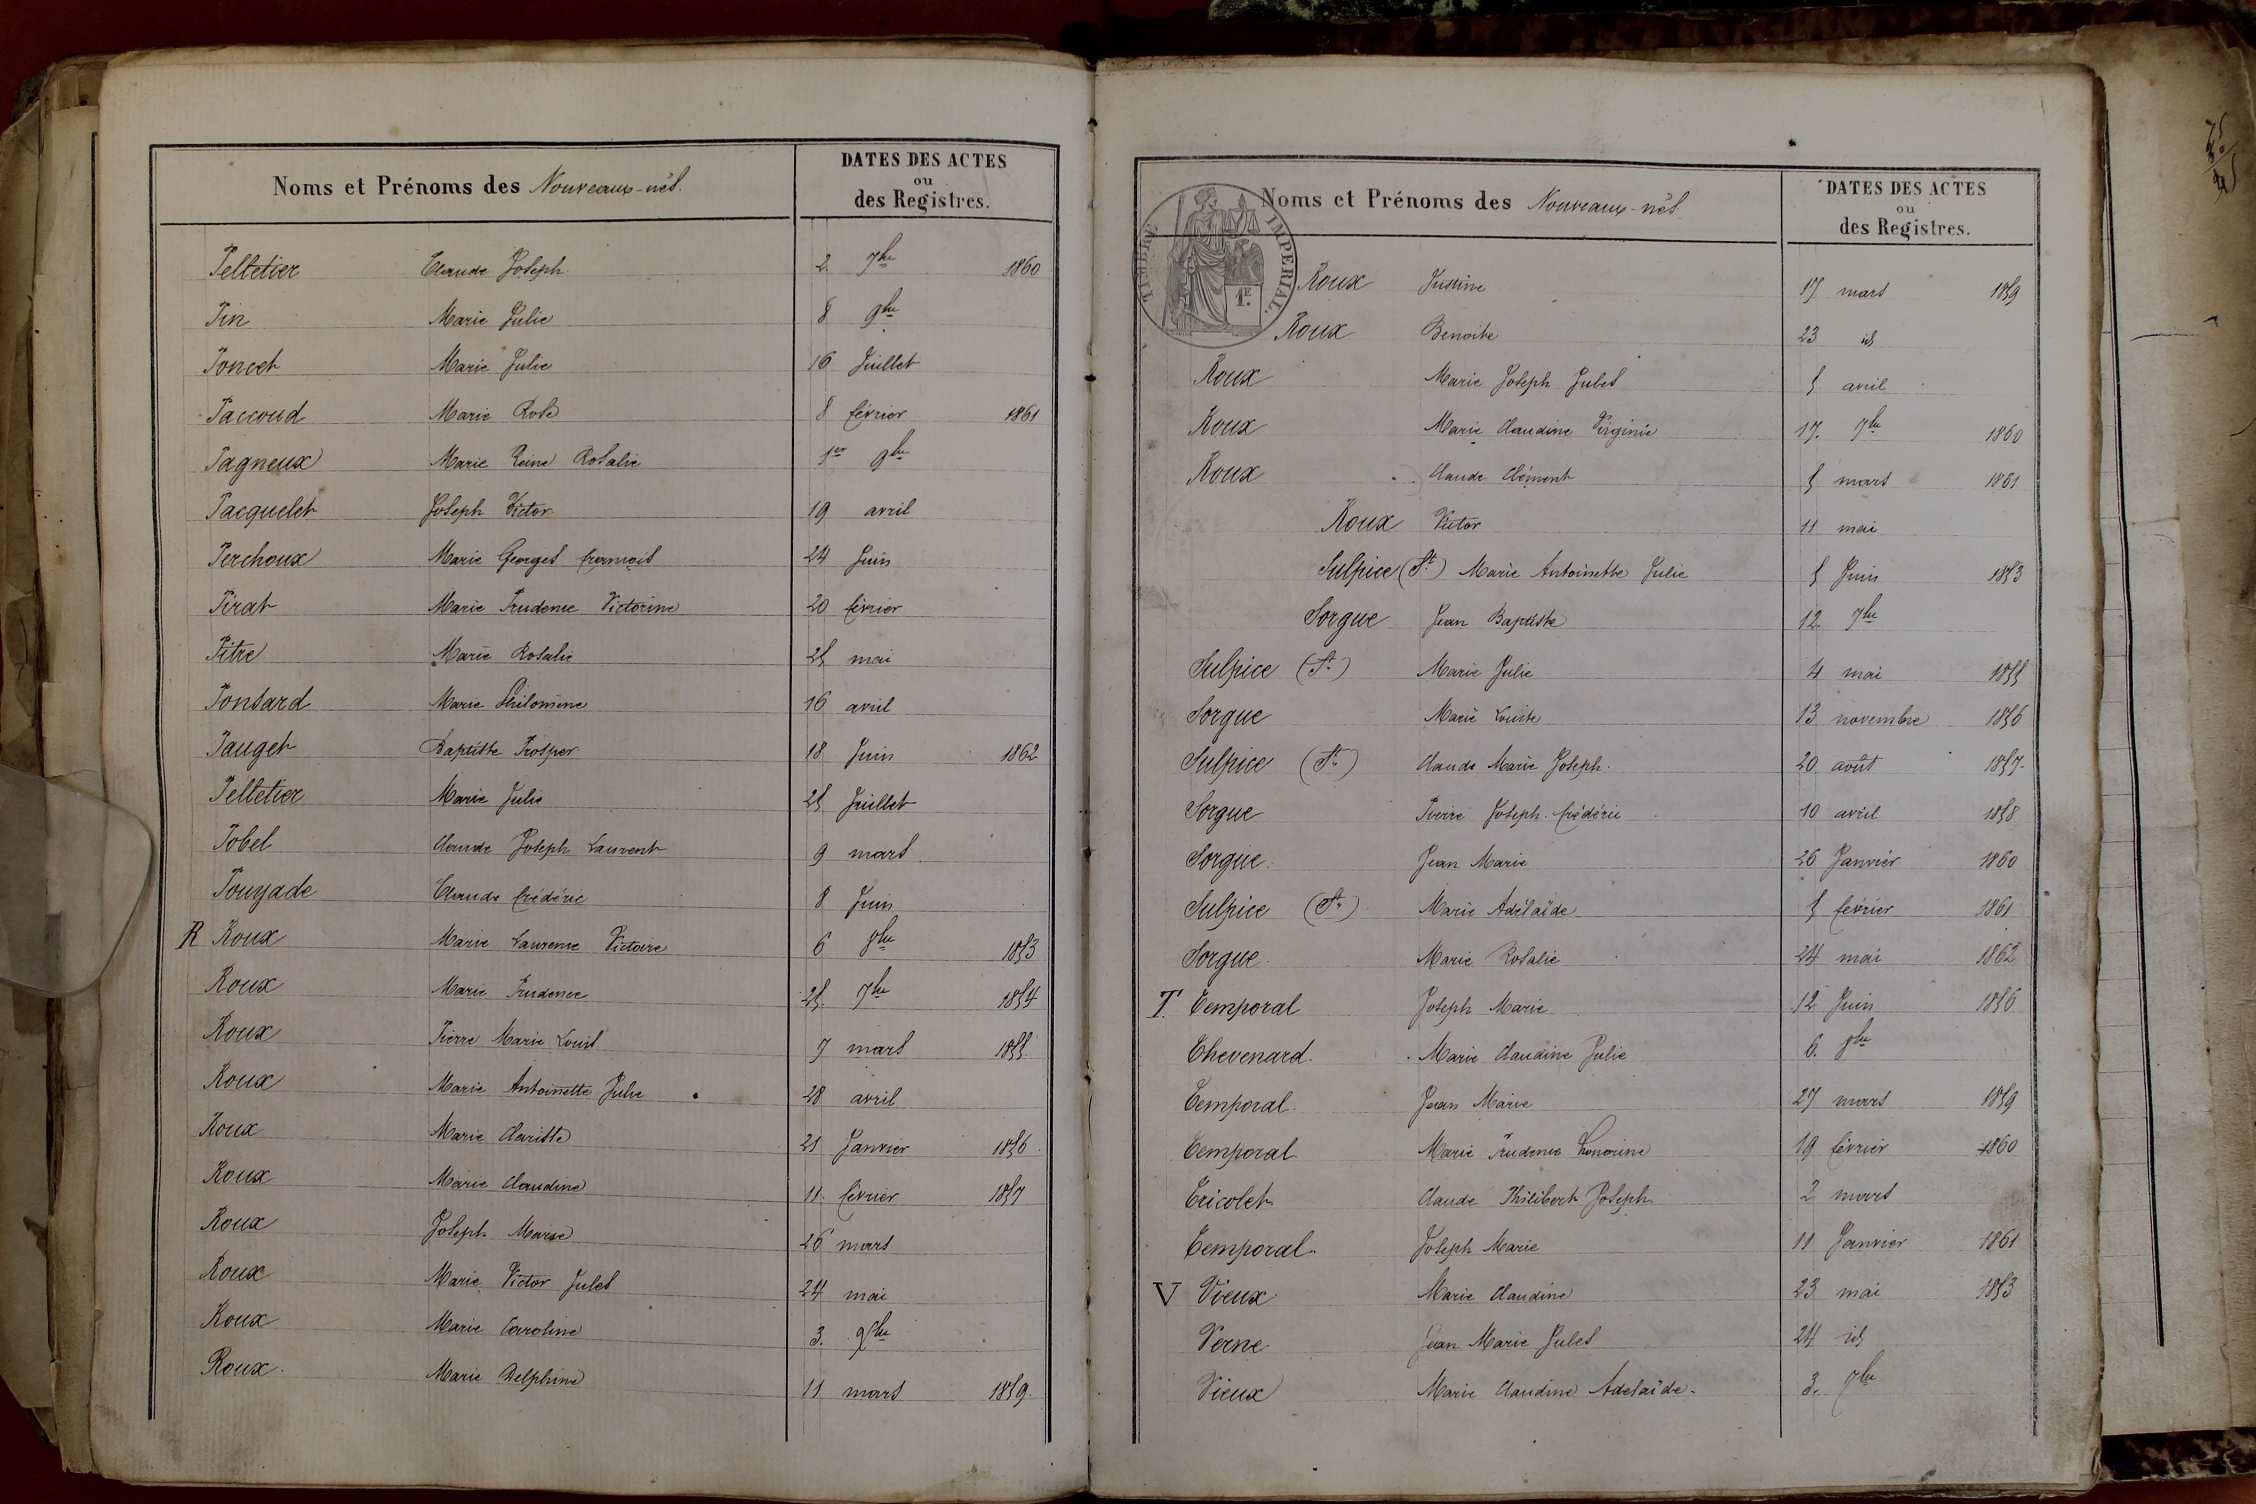 Noms et Prénoms des Nouveaux-nés.
DATES DES ACTES
ou
des Registres.
Pelletier Claude Joseph 2. 7bre 1860
Pin Marie Julie 8 9bre
Poncet Marie Julie 16 Juillet
Paccoud Marie Rose 8 février 1861
Pagneux Marie Reine Rosalie 1er 9bre
Pacquelet Joseph Victor 19 avril
Perchoux Marie Georges François 24 Juin
Pirat Marie Prudence Victorine 20 février
Pitre Marie Rosalie 25 mai
Ponsard Marie Philomène 16 avril
Pauget Baptiste Prosper 18 Juin 1862
Pelletier Marie Julie 25 Juillet
Pobel Claude Joseph Laurent 9 mars
Pouyade Claude frédéric 8 Juin
R Roux Marie Laurence Victoire 6 8bre 1853
Roux Marie Prudence 25. 7bre 1854
Roux Pierre Marie Louis 7 mars 1855.
Roux Marie Antoinette Julie 28 avril
Roux Marie Clarisse 21 Janvier 1856.
Roux Marie Claudine 11. février 1857
Roux Joseph Marie 26 mars
Roux Marie Victor Jules 24 mai
Roux Marie Caroline 3. Xbre
Roux. Marie Delphine 11 mars 1859.
Noms et Prénoms des Nouveaux-nés
DATES DES ACTES
ou
des Registres.
TIMBRE IMPERIAL.
1F.
Roux Justine 17 mars 1859
Roux Benoite 23 id
Roux Marie Joseph Jules 5 avril
Roux Marie Claudine Virginie 17. 7bre 1860
Roux Claude Clément 5 mars 1861
Roux Victor 11 mai
Sulpice (St.) Marie Antoinette Julie 5 Juin 1853
Sorgue Jean Baptiste 12 7bre
Sulpice (St.) Marie Julie 4 mai 1855
Sorgue Marie Louise 13 novembre 1856
Sulpice (St.) Claude Marie Joseph. 20 août 1857.
Sorgue Pierre Joseph. frédéric 10 avril 1858
Sorgue. Jean Marie 26 Janvier 1860
Sulpice (St.) Marie Adélaïde 5 février 1861
Sorgue. Marie Rosalie 24 mai 1862
T. Temporal Joseph Marie 12 Juin 1856
Thevenard. Marie Claudine Julie 6. 8bre
Temporal. Jean Marie 27 mars 1859
Temporal Marie Prudence honorine 19 février 1860
Tricolet Claude Philibert Joseph 2 mars
Temporal. Joseph Marie 11 Janvier 1861
V Vieux Marie Claudine 23 mai 1853
Verne Jean Marie Jules 24 id
Vieux Marie Claudine Adelaïde. 3. 7bre